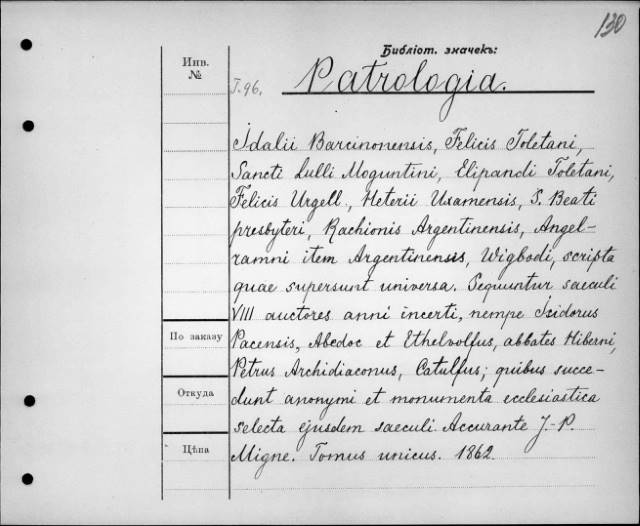 130
Библіот. значекъ:
Инв.
№
T. 96.
Patrologia.
Idalii Barcinonensis, Felicis Toletani,
Sancti Lulli Moguntini, Elipandi Toletani,
Felicis Urgell., Heterii Uxamensis, S. Beati
presbyteri, Rachionis Argentinensis, Angel-
ramni item Argentinensis, Wigbodi, scripta
quae supersunt universa. Sequuntur saeculi
VIII auctores anni incerti, nempe Isidorus
По заказу
Pacensis, Abedoc et Ethelvolfus, abbates Hiberni,
Petrus Archidiaconus, Catulfus; quibus succe-
Откуда
dunt anonymi et monumenta ecclesiastica
selecta ejusdem saeculi. Accurante J.-P.
Цѣна
Migne. Tomus unicus. 1862.